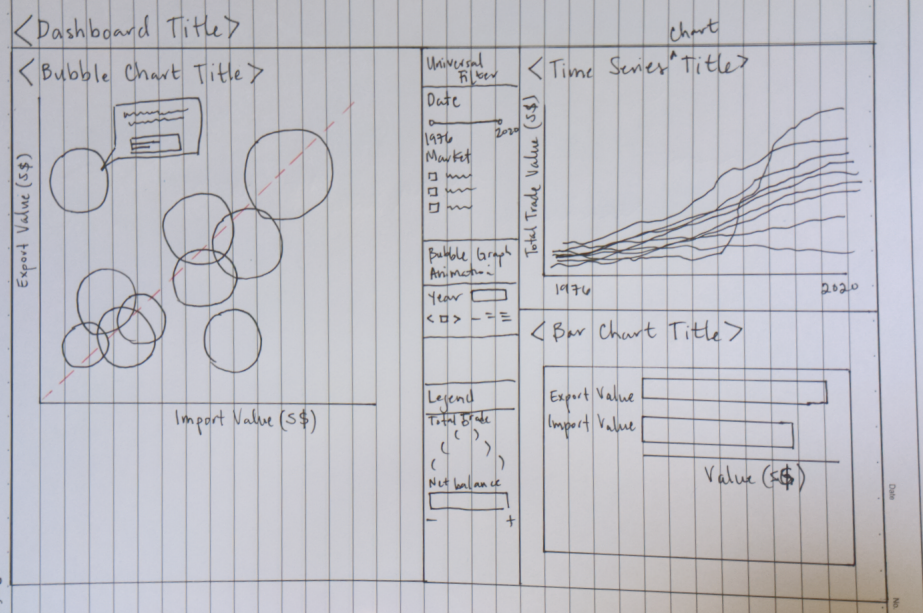 <Dashboard Title>
<Bubble Chart Title>
Export Value (S$)
Import Value (S$)
Universal
Filter
Date
1976
2020
Market
Bubble Graph
Animation
Year
< >
Legend
Total Trade
Net balance
- +
Chart
<Time Series ^ Title>
Total Trade Value (S$)
1976
2020
<Bar Chart Title>
Export Value
Import Value
Value (S$)
Date
No.